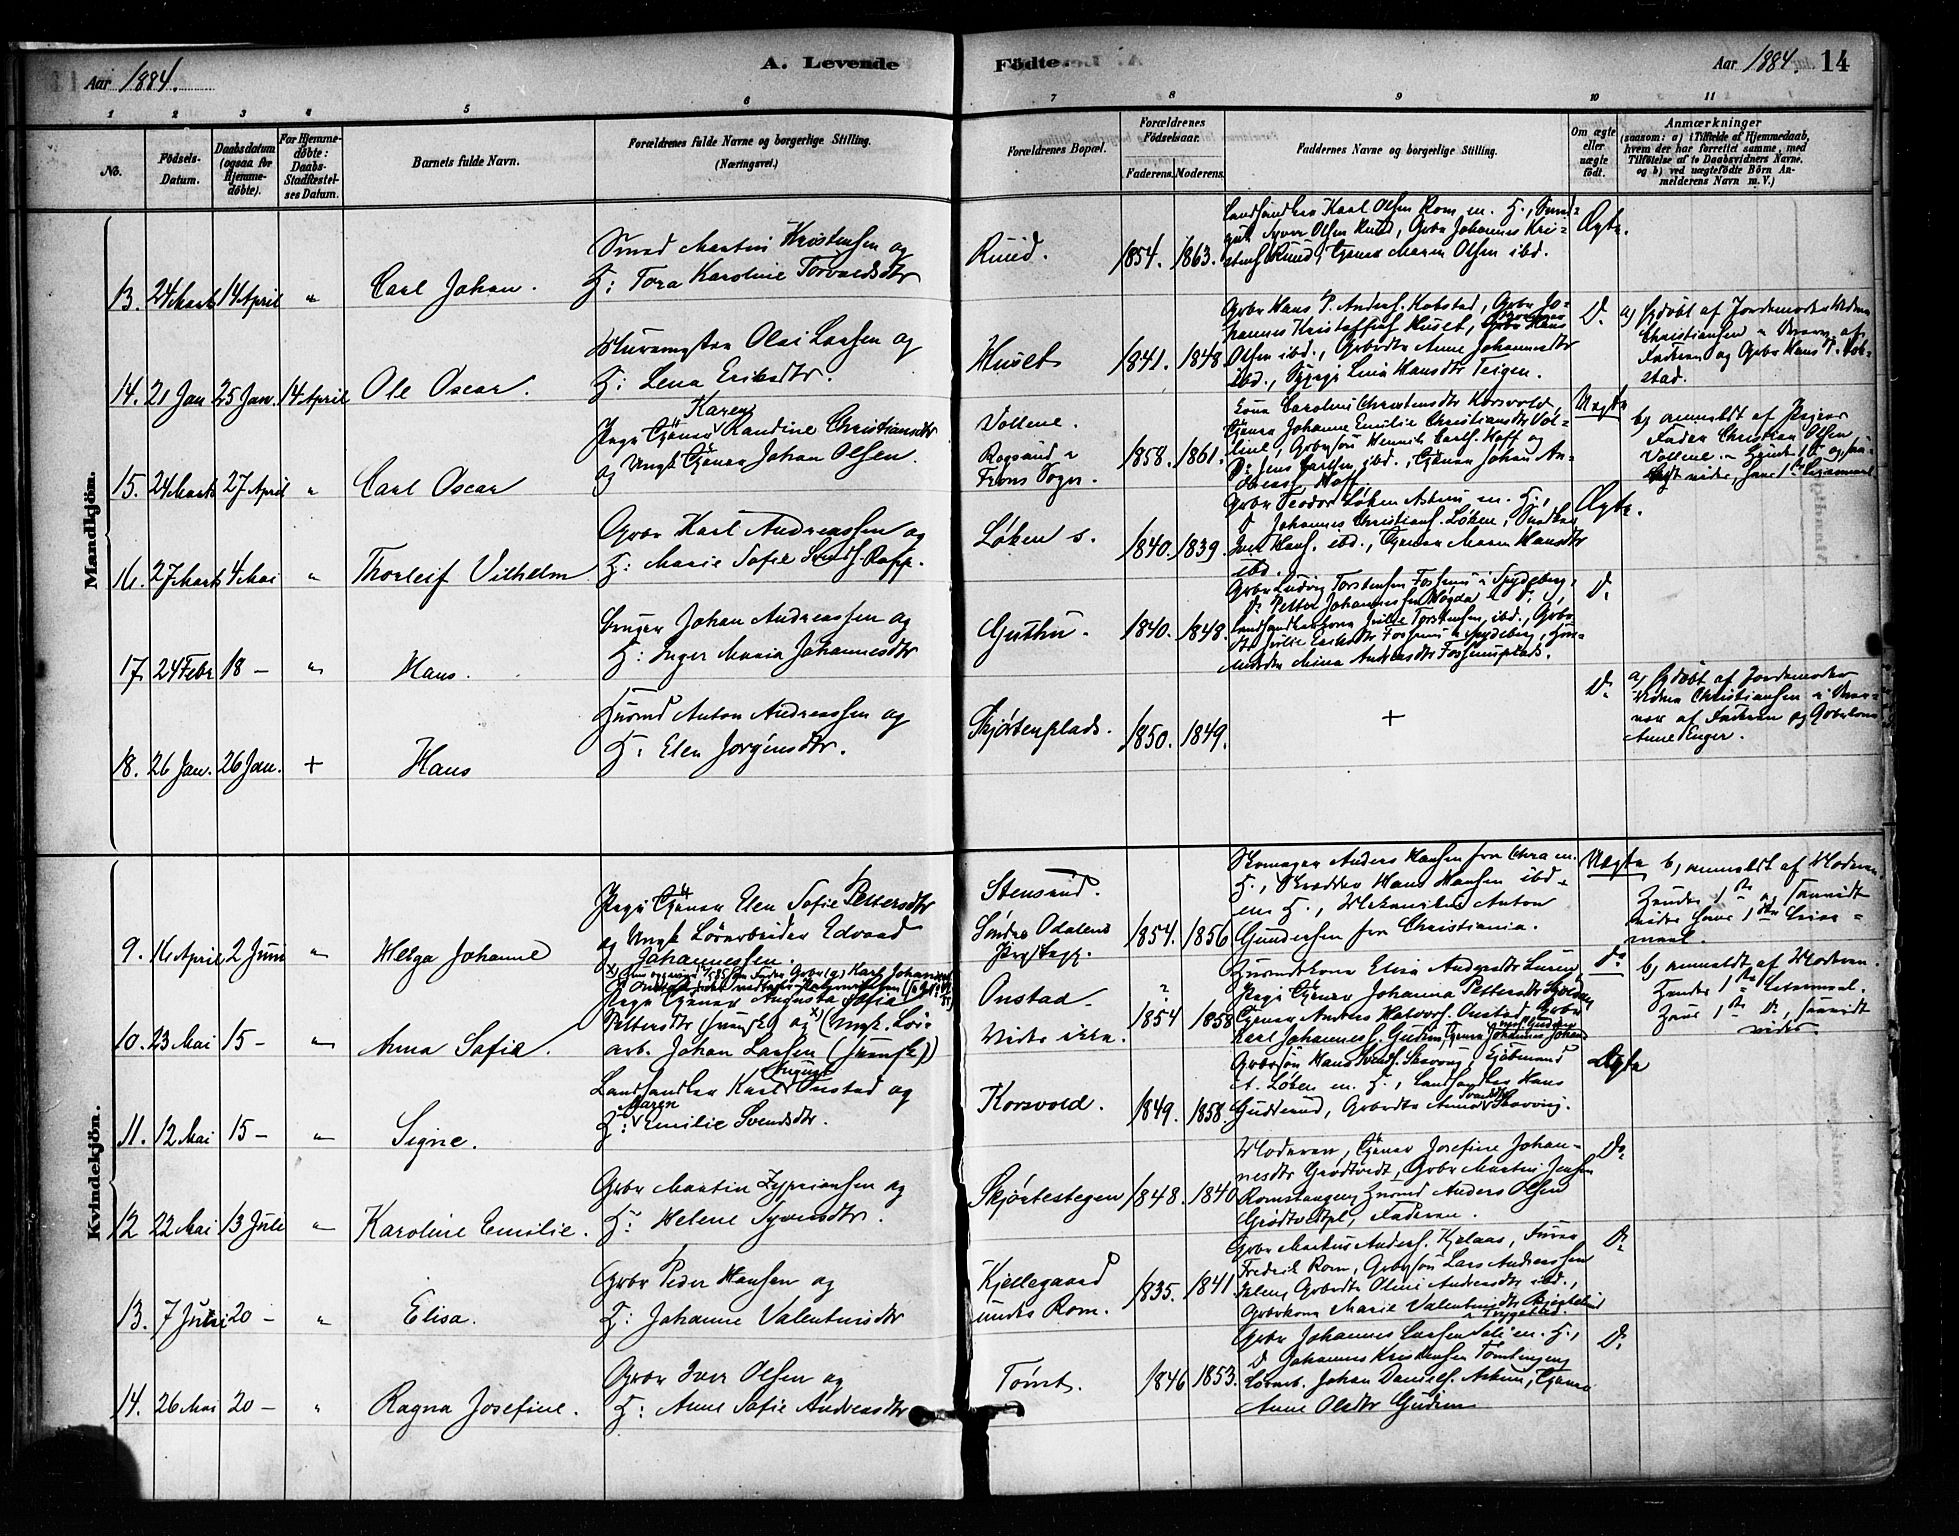 Aar 1884.
A. Levende
Fødte.
Aar 1884. 14
1 2 3 4 5 6 7 8 9 10 11
No.
Fødsels-
Datum.
Daabsdatum
(ogsaa for
Hjemme-
døbte).
For Hjemme-
døbte:
Daabs-
Stadfæstel-
ses Datum.
Barnets fulde Navn.
Forældrenes fulde Navne og borgerlige Stilling.
(Næringsvei.)
Forældrenes Bopæl.
Forældrenes
Fødselsaar.
Faderens. Moderens.
Faddernes Navne og borgerlige Stilling.
Om ægte
eller
uægte
født.
Anmærkninger
(saasom: a) i Tilfælde af Hjemmedaab,
hvem der har forrettet samme, med
Tilføielse af to Daabsvidners Navne,
og b) ved uægtefødte Børn An-
melderens Navn m. V.)
Mandkjøn.
13. 24 Marts 14 April " Carl Johan.
Smed Martin Kristensen og
H: Tora Karoline Torvaldsdtr
Ruud. 1854. 1863.
Landhandler Karl Olsen Rom m. H., Smed-
gut Syver Olsen Ruud, Grbr Johannes Kri-
stens. Ruud, Tjener Maren Olsen ibd.
Ægte.
14. 21 Jan 25 Jan. 14 April Ole Oscar.
Murermester Olai Larsen og
H: Lena Eriksdtr.
Huset 1841. 1848
Grbr Hans P. Anders. Kobstad, Grbr Jo-
hannes Kristoffers. Huset, Hans
Olsen ibd., Grbrdtr Anne Johannesdtr
ibd., Sypige Lina Hansdtr Teigen.
D.
a) Hjdøbt af Jordemoder
Christiansen i Nærv. af
Faderen og Grbr Hans P. Kob-
stad.
15. 24 Marts 27 April " Carl Oscar
Karen
Pige Tjener Randine Christiansdtr
og Ungk. Tjener Johan Olsen.
Vollene.
Rogsund i
Frons Sogn. 1858. 1861.
Kone Caroline Christensdtr Korsvold,
Tjener Johanne Emilie Christiansdtr Vol-
lene, Grbrsøn Henrik Carls. Hoff og
Do Jens Carlsen ibd., Tjener Johan An-
dreas. Hoff.
Uægte
b) anmeldt af Pigens
Fader Christian Olsen
Vollene. Hendes 1te og saa-
vidt vides, hans 1te Leiermaal
16. 27 Marts 4 Mai " Thorleif Vilhelm
Grbr Karl Andreassen og
H: Marie Sofie Svends. Rapp.
Løken s. 1840. 1839.
Grbr Teodor Løken Askim m. H.,
D Johannes Christians. Løken, Snedker
Iver Hans. ibd., Tjener Maren Hansdtr
ibd.
Ægte.
17. 24 Febr 18 - " Hans.
Bruger Johan Andreassen og
H: Inger Maria Johannesdtr
Guthu. 1840. 1848.
Grbr Ludvig Torstensen Fossum i Spydeberg,
Do Petter Johannessen
Landhandlerkone Torstensen ibd., Grbr-
dtr Julie Eriksdtr Fossum i Spydeberg,
Mina Andreasdtr Fossumsplads.
D.
18. 26 Jan. 26 Jan. + Hans
Husmd Anton Andreassen og
H: Elen Jørgensdtr.
Skjørtenplads. 1850. 1849.
+
D.
a) Hjdøbt af Jordemoder
Christiansen i Nær-
vær af Faderen og Grbrkone
Anne Enger.
Kvindekjøn.
9. 16 April 2 Juni " Helga Johanne
Pige Tjener Elen Sofie Pettersdtr
og Ungk. Løsarbeider Edvard
Johannessen.
Stensrud.
Søndre Odalens
Præstegj. 1854. 1856
Skomager Anders Hansen fra Chra m.
H., Skrædder Hans Hansen ibd.
m. H., Mekaniker Anton
Gundersen fra Christiania.
Uægte
b) anmeldt af Moderen.
Hendes 1te og saavidt
vides hans 1ste Leier-
maal.
10. 23 Mai 15 - " Anna Sofia.
Pige Tjener Augusta Sofia
Pettersdtr (svensk) og x) (Ungk. Løs-
arb. Johan Larsen (svensk))
Onstad
Vides ikke. ? 1854 1858
Husmdskone Elise Andersdtr
Pige Tjener Johanna Pettersdtr
Tjener Andreas Halvors. Onstad, Grbr
Karl Johanness. Gudim, Tjener Johannes Johans.
Do
b) anmeldt af Moderen.
Hendes 1ste Leiermaal.
Hans 1te D., saavidt
vides
11. 12 Mai 15 - " Signe.
August
Landhandler Karl Onstad og
Maren
H: Emilie Svendsdtr.
Korsvold. 1849. 1858.
Grbrsøn Hans Svends. Skovvig, Kjøbmand
A. Løken m. H., Landhandler Hans
Gudserud, Grbrdtr Anna Svendsdtr Skovvig.
Ægte
12 22 Mai 13 Juli " Karoline Emilie.
Grbr Martin Zypriansen og
H: Helene Syversdtr.
Skjørtestegen 1848. 1840
Moderen, Tjener Josefine Johan-
nesdtr Grødtvedt, Grbr Martin Jensen
Romstangen, Husmd Anders Olsen
Grødtvedtpl, Faderen.
Do
13. 7 Juni 20 - " Elisa.
Grbr Peder Hansen og
H: Johanne Valentinsdtr
Kjellegaard
under Rom. 1835. 1841
Grbr Martin Anders. Kjelaas,
Fredrik Rom, Grbrsøn Lars Andreassen
Grbrdtr Oline Andreasdtr ibd.,
Grbrkone Marie Valentinsdtr
i Trygstad.
D.
14. 26 Mai 20 - " Ragna Josefine.
Grbr Iver Olsen og
H: Anne Sofie Andreasdtr
Tømt. 1846 1853.
Grbr Johannes Larsen m. H.,
D Johannes Kristensen Tomtengen,
Løsarb. Johan Daniels. Askim, Tjener
Anne Olsdtr Gudim
D.